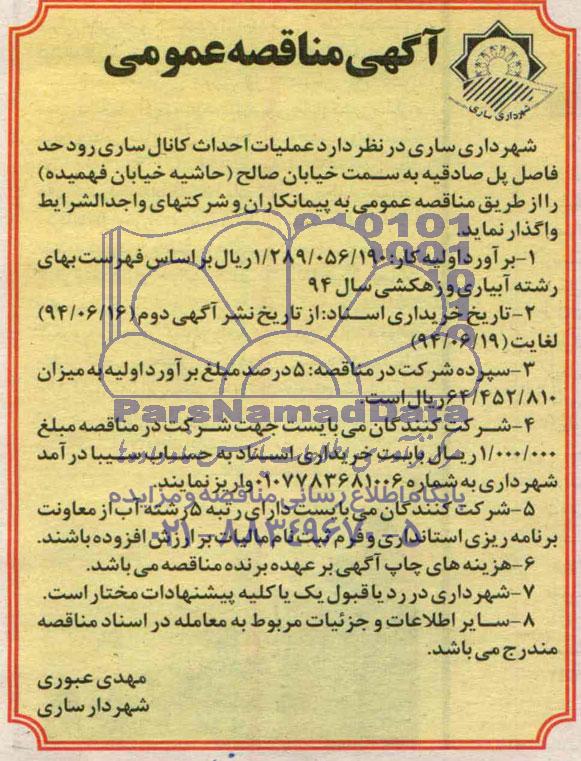 آگهی مناقصه عمومی
شهرداری ساری
شهرداری ساری در نظر دارد عملیات احداث کانال ساری رود حد
فاصل پل صادقیه به سمت خیابان صالح (حاشیه خیابان فهمیده)
را از طریق مناقصه عمومی به پیمانکاران و شرکتهای واجدالشرایط
واگذار نماید.
۱-برآورد اولیه کار: ۱/۲۸۹/۰۵۶/۱۹۰ ریال براساس فهرست بهای
رشته آبیاری و زهکشی سال ۹۴
۲-تاریخ خریداری اسناد: از تاریخ نشر آگهی دوم (۹۴/۰۶/۱۶)
لغایت (۹۴/۰۶/۱۹)
۳-سپرده شرکت در مناقصه: ۵ درصد مبلغ برآورد اولیه به میزان
۶۴/۴۵۲/۸۱۰ ریال است.
۴-شرکت کنندگان می بایست جهت شرکت در مناقصه مبلغ
۱/۰۰۰/۰۰۰ ریال بابت خریداری اسناد به حساب سیبا درآمد
شهرداری به شماره ۰۱۰۷۷۸۳۶۸۱۰۰۶ واریز نمایند.
۵-شرکت کنندگان می بایست دارای رتبه ۵ رشته آب از معاونت
برنامه ریزی استانداری و فرم ثبت نام مالیات بر ارزش افزوده باشند.
۶-هزینه های چاپ آگهی بر عهده برنده مناقصه می باشد.
۷-شهرداری در رد یا قبول یک یا کلیه پیشنهادات مختار است.
۸-سایر اطلاعات و جزئیات مربوط به معامله در اسناد مناقصه
مندرج می باشد.
مهدی عبوری
شهردار ساری
ParsNamadData
پایگاه اطلاع رسانی مناقصه و مزایده
۰۲۱-۸۸۳۴۹۶۷۰-۵